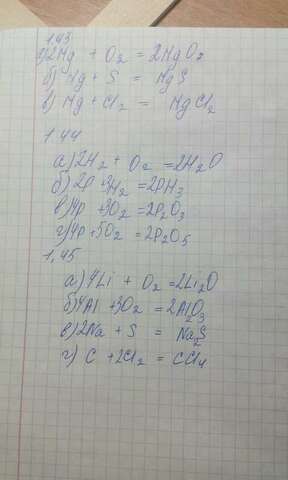 1.43
а) 2Mg + O₂ = 2MgO₂
б) Mg + S = MgS
в) Mg + Cl₂ = MgCl₂
1.44
а) 2H₂ + O₂ = 2H₂O
б) 2P + 3H₂ = 2PH₃
в) 4P + 3O₂ = 2P₂O₃
г) 4P + 5O₂ = 2P₂O₅
1,45
а) 4Li + O₂ = 2Li₂O
б) 4Al + 3O₂ = 2Al₂O₃
в) 2Na + S = Na₂S
г) C + 2Cl₂ = CCl₄